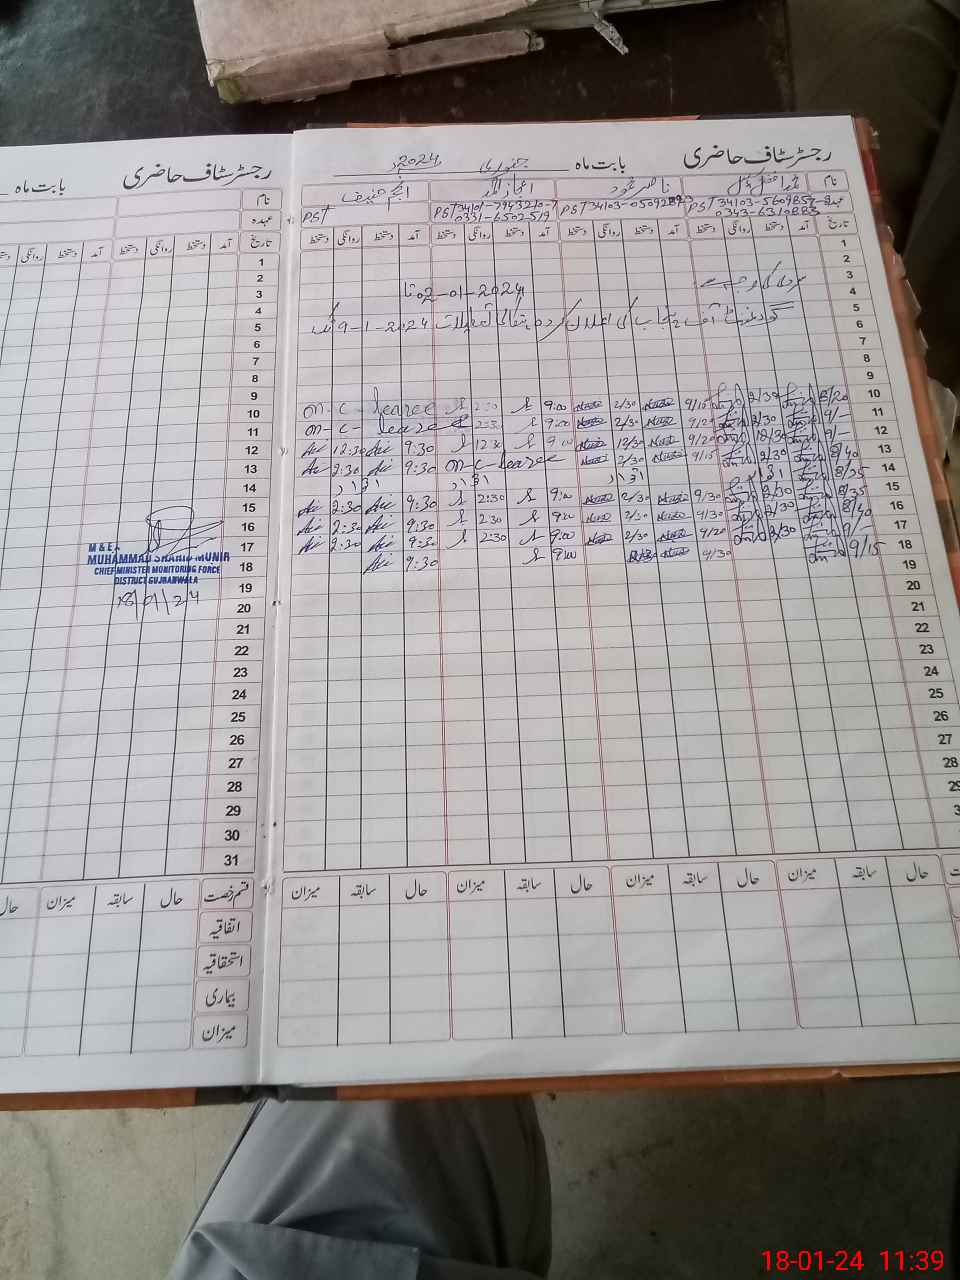 رجسٹر سٹاف حاضری بابت ماہ جنوری 2024ء
نام ناصر محمود اعجاز احمد انجم حنیف
عہدہ PST 34103-5609857-9 PST 34103-0509289-3 PST 34101-7943210-7 PST
0343-6310883 0331-6502519
تاریخ آمد دستخط روانگی دستخط آمد دستخط روانگی دستخط آمد دستخط روانگی دستخط آمد دستخط روانگی دستخط
1
2
3 سردی کی وجہ سے 02-01-2024 تا
4
5 گورنمنٹ آف پنجاب کی اعلان کردہ مقامی تعطیلات 9-1-2024 تک
6
7
8
9
10 8/20 2/30 9/15 2/30 9:00 2:30 on-C-leave
11 9/- 2/30 9/20 2/30 9:00 2:30 on-C-leave
12 9/- 12/30 9/20 12/30 9:00 12:30 9:30 12:30
13 8/40 2/30 9/15 2/30 on-C-leave 9:30 2:30
14 اتوار اتوار اتوار
15 8/35 2/30 9/30 2/30 9:00 2:30 9:30 2:30
16 8/40 2/30 9/30 2/30 9:00 2:30 9:30 2:30
17 9/- 2/30 9/20 2/30 9:00 2:30 9:30 2:30
18 9/15 9/30 9:00 9:30
19
20
21
22
23
24
25
26
27
28
29
حال سابقہ میزان حال سابقہ میزان حال سابقہ میزان حال سابقہ میزان
رجسٹر سٹاف حاضری بابت ماہ
نام
عہدہ
تاریخ آمد دستخط روانگی دستخط آمد دستخط روانگی
1
2
3
4
5
6
7
8
9
10
11
12
13
14
15
16
17
18
19
20
21
22
23
24
25
26
27
28
29
30
31
M & E A
MUHAMMAD SHAHID MUNIR
CHIEF MINISTER MONITORING FORCE
DISTRICT GUJRANWALA
18/01/24
قسم رخصت حال سابقہ میزان حال
اتفاقیہ
استحقاقیہ
بیماری
میزان
18-01-24 11:39